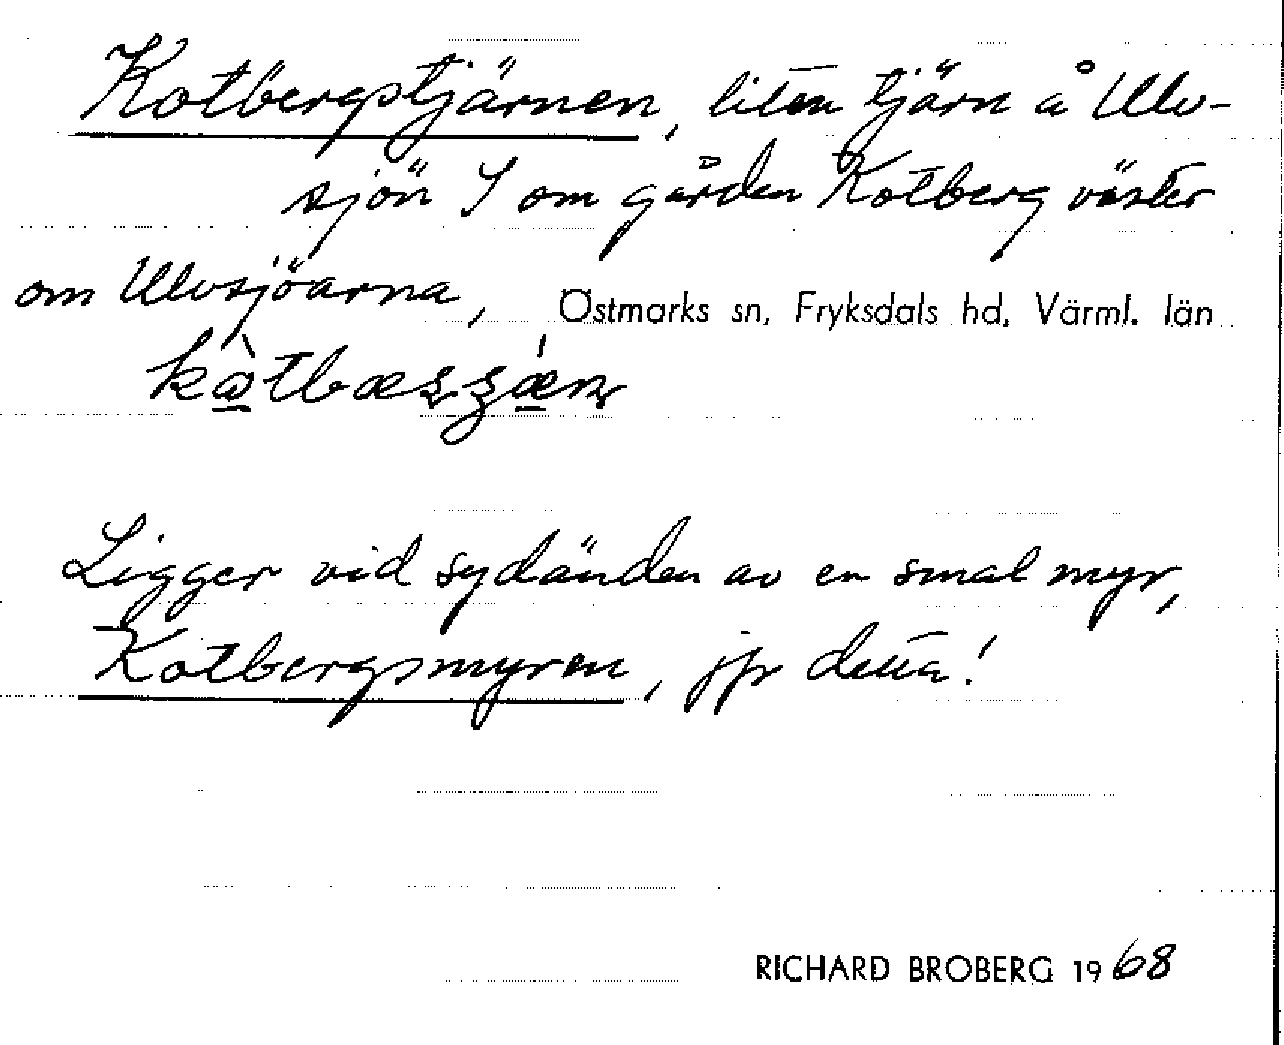 Kotbergstjärnen, liten tjärn å Ulv-
sjön S om gården Kotberg väster
om Ulvsjöarna, Östmarks sn, Fryksdals hd, Värml. län
Ligger vid sydänden av en smal myr,
Kotbergsmyren, jfr detta!
RICHARD BROBERG 1968